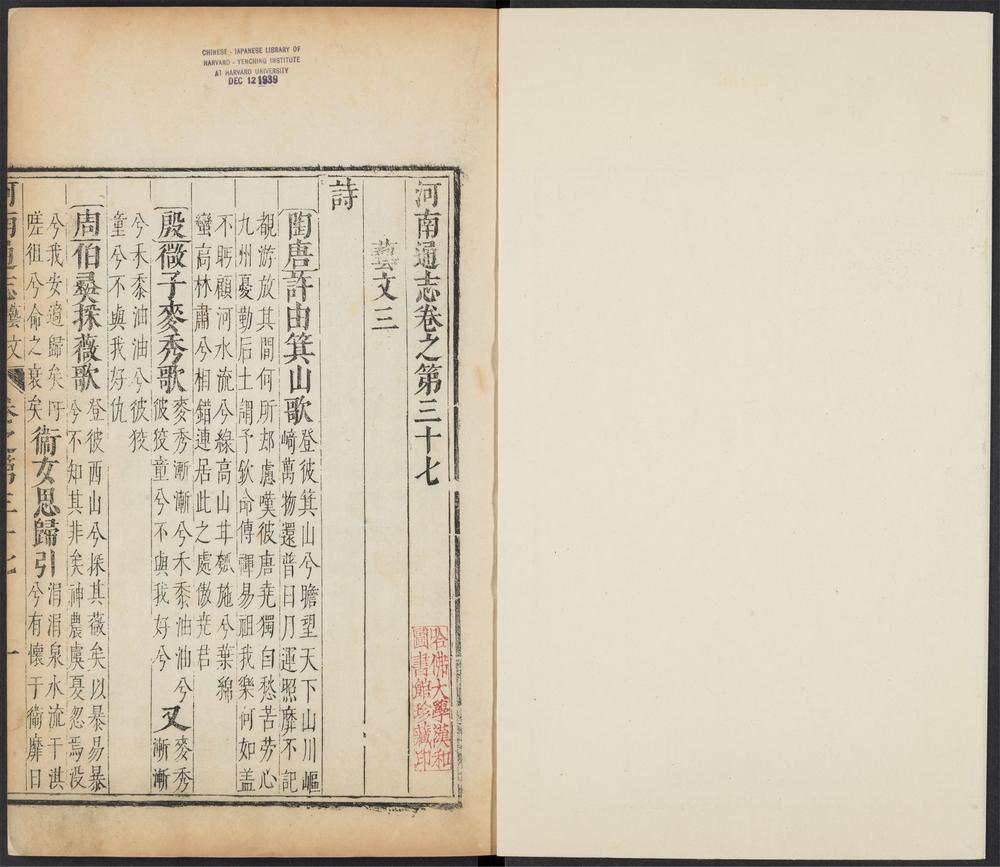 CHINESE - JAPANESE LIBRARY OF
HARVARD - YENCHING INSTITUTE
AT HARVARD UNIVERSITY
DEC 12 1939
河南通志卷之第三十七
哈佛大學漢和
圖書館珍藏印
藝文三
詩
陶唐許由箕山歌
登彼箕山兮瞻望天下山川嶇
﨑萬物還普日月運照靡不記
覩游放其間何所却慮嘆彼唐尭獨自愁苦劳心
九州憂勤后土謂予欽命傳禪易祖我樂何如盖
不眄顧河水流兮綠高山甘瓠施兮葉綿
蠻高林肅兮相錯連居此之處傲尭君
殷微子麥秀歌
麥秀漸漸兮禾黍油油兮
彼狡童兮不與我好兮
又
麥秀
漸漸
兮禾黍油油兮彼狡
童兮不與我好仇
周伯夷採薇歌
登彼西山兮採其薇矣以暴易暴
兮不知其非矣神農虞夏忽焉没
兮我安適歸矣吁
嗟徂兮命之衰矣
衞女思歸引
涓涓泉水流于淇
兮有懷于衞靡日
河南通志藝文
卷之第三十七
一